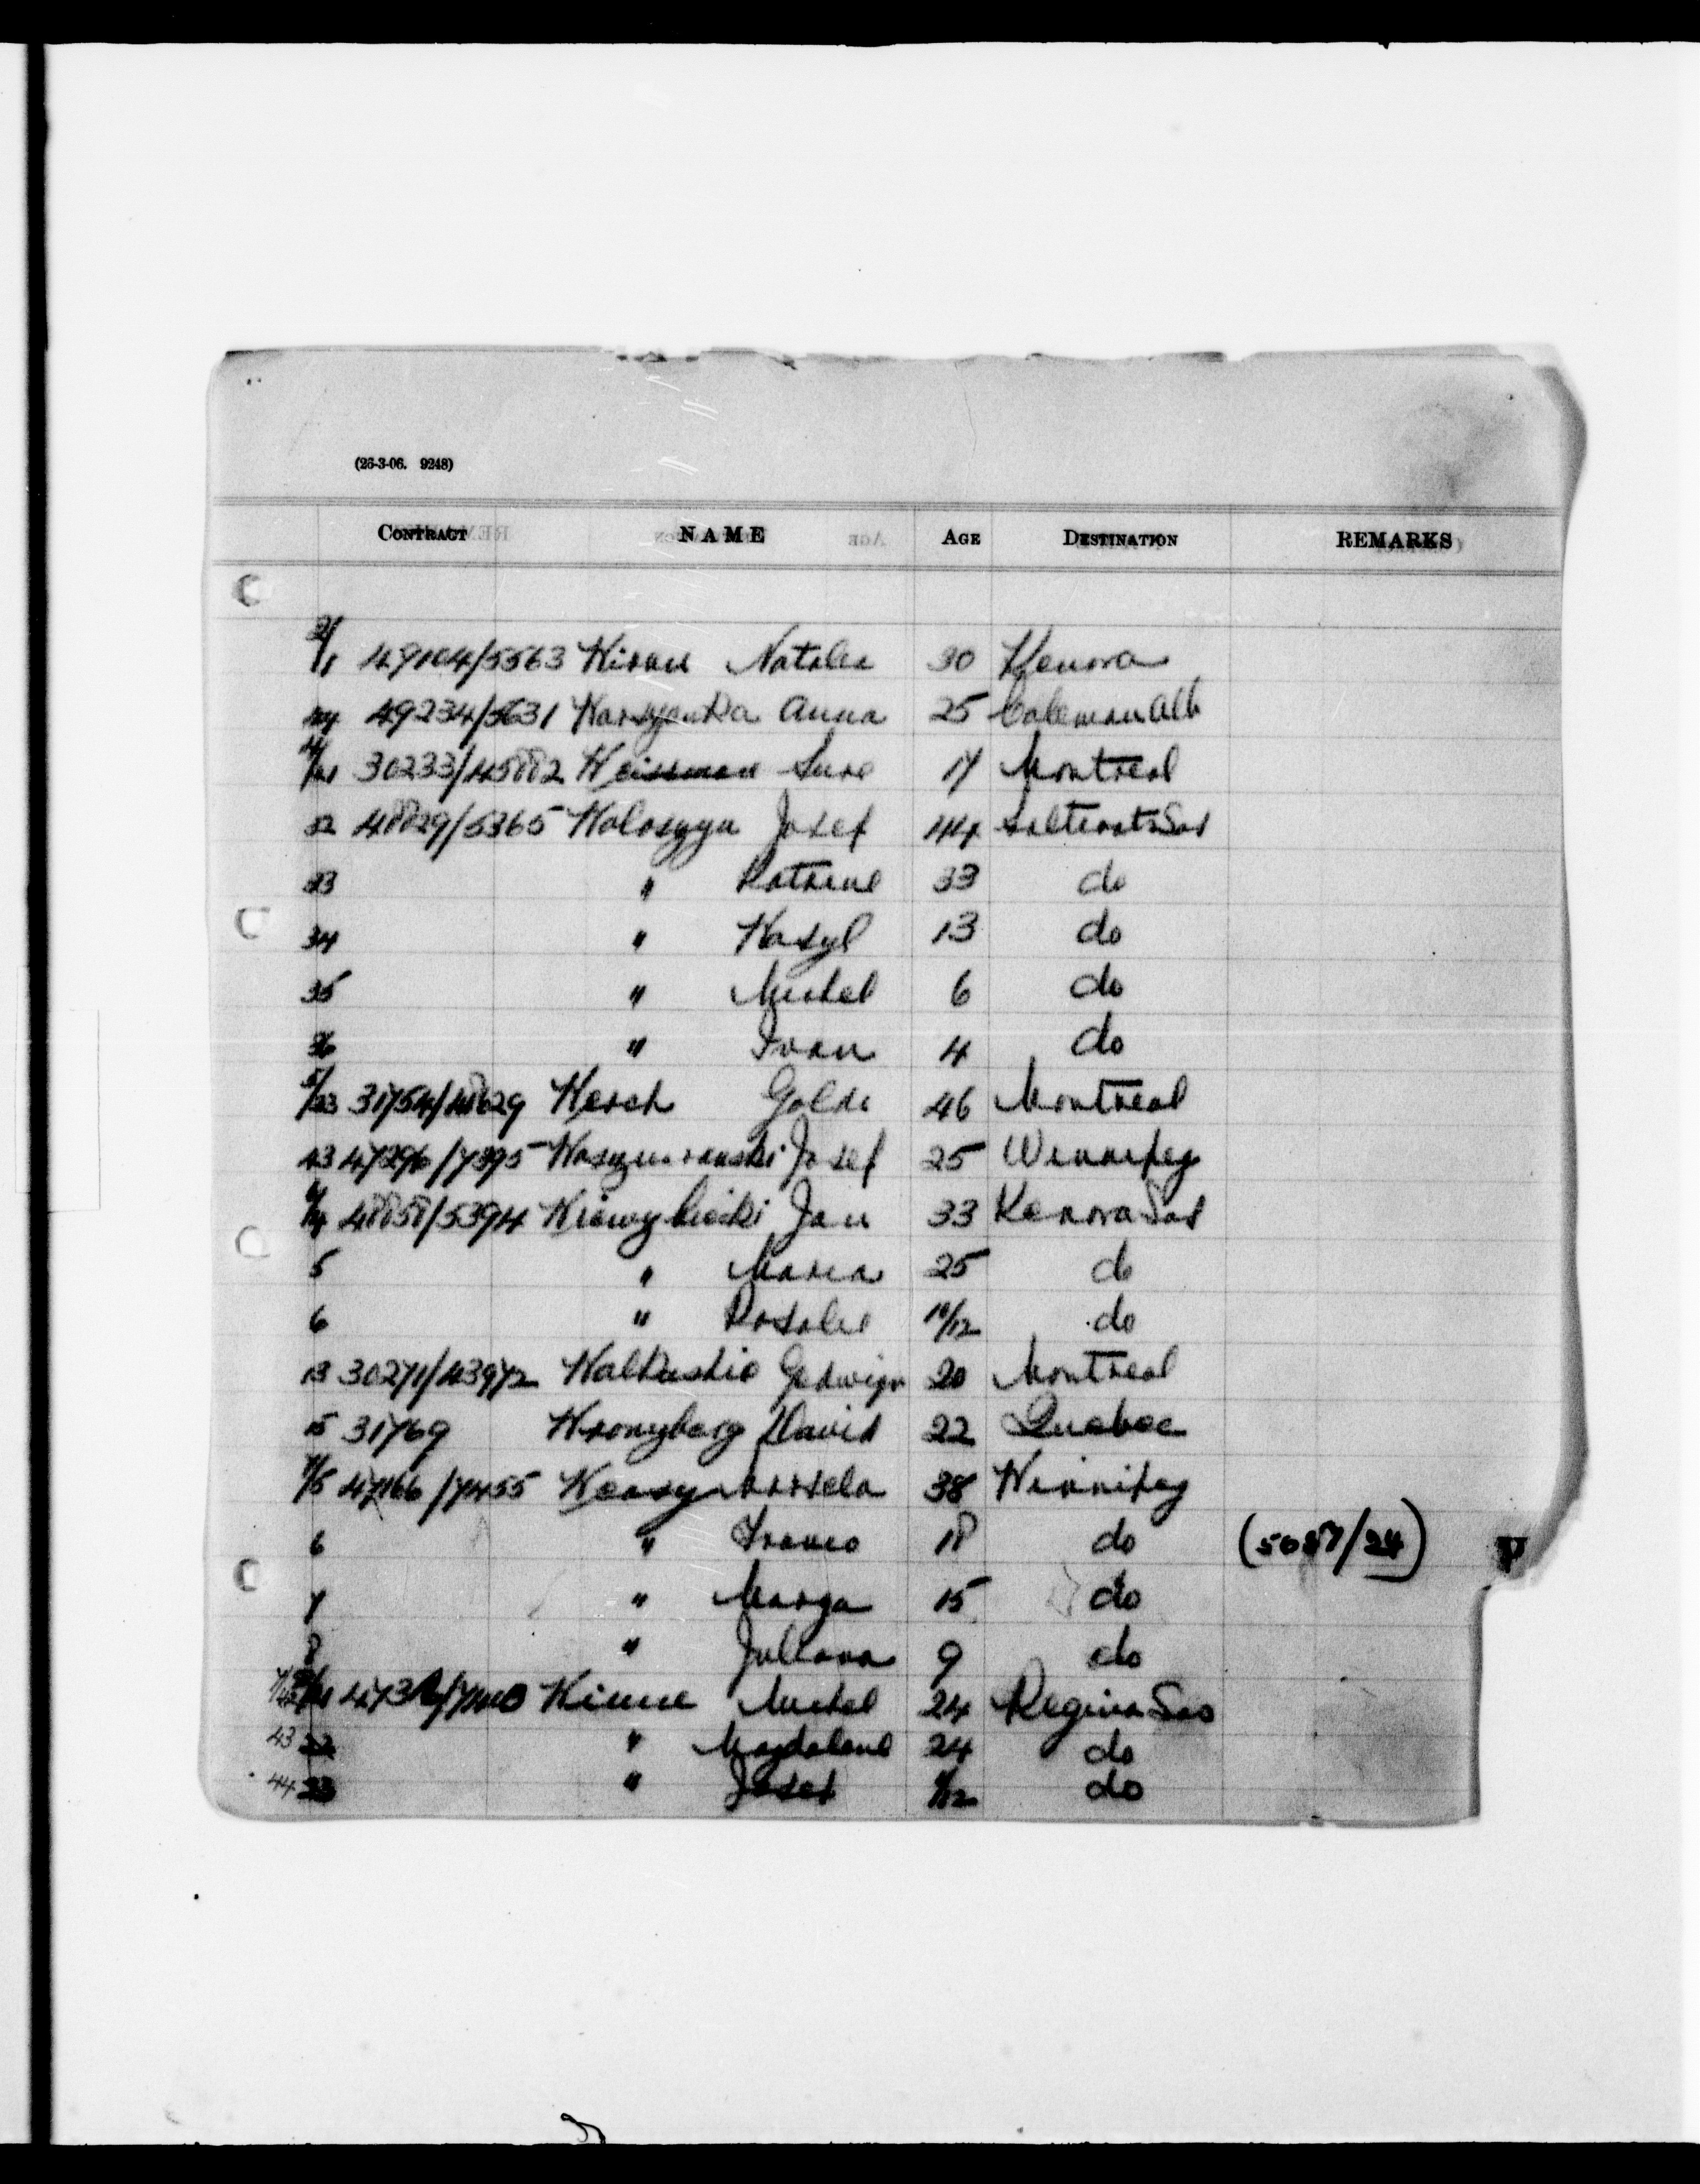 (26-3-06. 9248)
CONTRACT NAME AGE DESTINATION REMARKS
3/1 49104/5563 Kirau Natalia 30 Kenora
49234/5631 Anna 25 Coleman Alb
4/ 30233/45882 Keissman Sure 17 Montreal
32 48829/5365 Kolosyyn Josef 44 Saltcoats Sas
33 " Katrine 33 do
34 " Wasyl 13 do
35 " Michel 6 do
36 " Ivan 4 do
5/33 31754/48629 Kersch Golde 46 Montreal
43 47296/7395 Josef 25 Winnipeg
6/4 48858/5394 Jan 33 Kenora Sas
5 " Maria 25 do
6 " Rosalie 10/12 do
13 30271/43972 Gedwiga 20 Montreal
15 31769 Kronyberg David 22 Quebec
7/5 47166/7455 38 Winnipeg
6 " Franco 18 do (5087/24)
7 " Marya 15 do
8 " Juliana 9 do
Kinne Michel 24 Regina Sas
43 22 " Magdalene 24 do
44 23 " Josef do